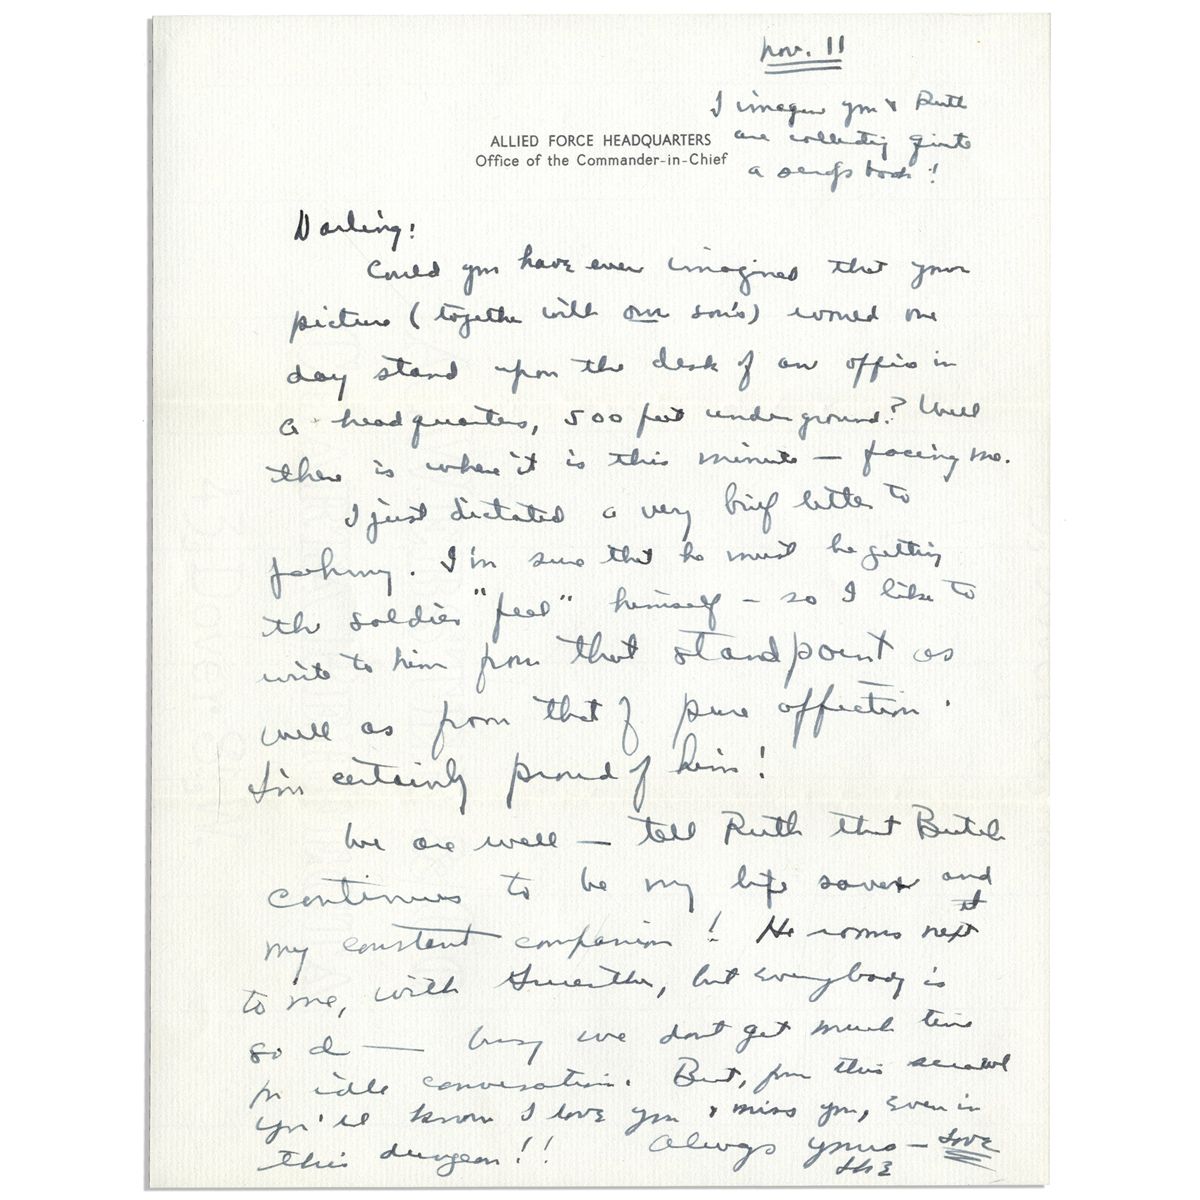 Nov. 11
I imagine you & Ruth
are collecting quite
a scrap book!
ALLIED FORCE HEADQUARTERS
Office of the Commander-in-Chief
Darling:
Could you have ever imagined that your
picture (together with our son's) would one
day stand upon the desk of an office in
a headquarters, 500 feet underground? Well
there is where it is this minute — facing me.
I just dictated a very brief letter to
Johnny. I'm sure that he must be getting
the soldier "feel" himself — so I like to
write to him from that standpoint as
well as from that of pure affection.
I'm certainly proud of him!
We are well — tell Ruth that Butch
continues to be my life saver and
my constant companion! He rooms next
to me, with, but everybody is
so d— busy we don't get much time
for idle conversation. But, from this scrawl
you'll know I love you & miss you, even in
this dungeon!!
Always yours — Love
Ike